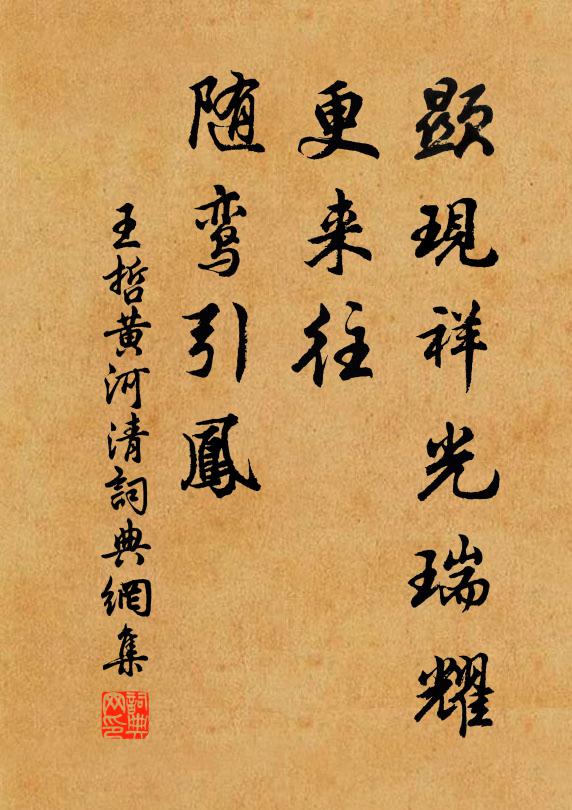 顯現祥光瑞耀
更来往
随鸾引鳳
王哲黄河清詞典網集
詞典网印